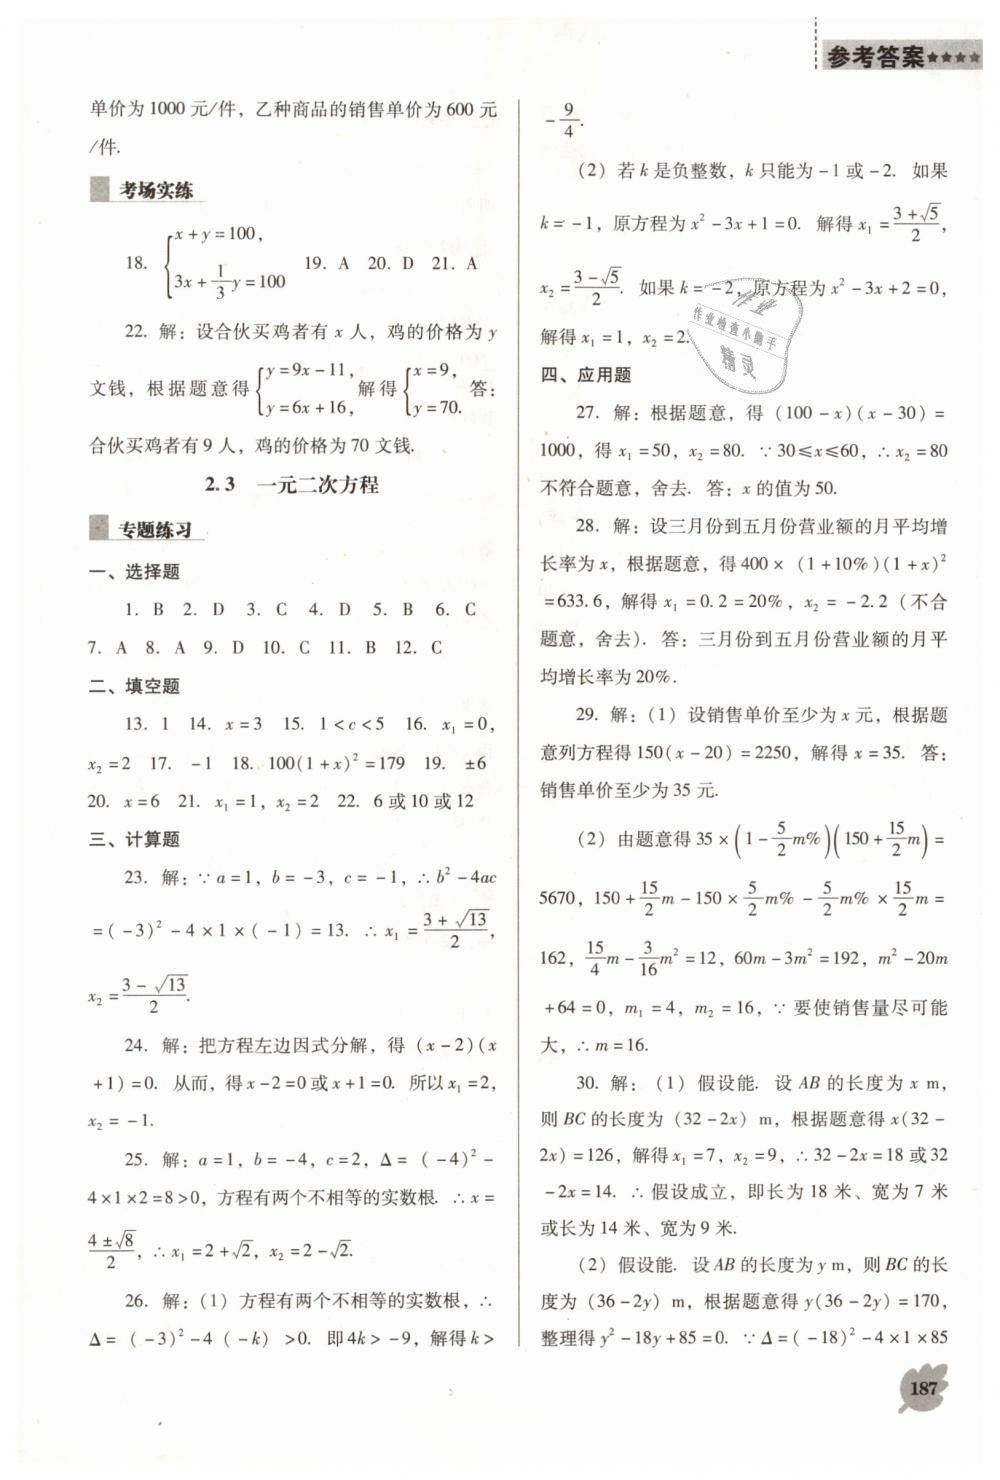 参考答案★★★★
单价为 1000 元/件，乙种商品的销售单价为 600 元
/件.
考场实练
18. {x + y = 100, 3x + 1/3 y = 100 19. A 20. D 21. A
22. 解：设合伙买鸡者有 x 人，鸡的价格为 y
文钱，根据题意得{y = 9x - 11, y = 6x + 16, 解得{x = 9, y = 70. 答：
合伙买鸡者有 9 人，鸡的价格为 70 文钱.
2. 3 一元二次方程
专题练习
一、选择题
1. B 2. D 3. C 4. D 5. B 6. C
7. A 8. A 9. D 10. C 11. B 12. C
二、填空题
13. 1 14. x = 3 15. 1 < c < 5 16. x₁ = 0,
x₂ = 2 17. -1 18. 100(1 + x)² = 179 19. ±6
20. x = 6 21. x₁ = 1, x₂ = 2 22. 6 或 10 或 12
三、计算题
23. 解：∵ a = 1, b = -3, c = -1, ∴ b² - 4ac
= ( -3)² - 4 × 1 × ( -1) = 13. ∴ x₁ = (3 + √13)/2,
x₂ = (3 - √13)/2.
24. 解：把方程左边因式分解，得 (x - 2)(x
+ 1) = 0. 从而，得 x - 2 = 0 或 x + 1 = 0. 所以 x₁ = 2,
x₂ = -1.
25. 解：a = 1, b = -4, c = 2, Δ = ( -4)² -
4 × 1 × 2 = 8 > 0，方程有两个不相等的实数根. ∴ x =
(4 ± √8)/2, ∴ x₁ = 2 + √2, x₂ = 2 - √2.
26. 解：(1) 方程有两个不相等的实数根，∴
Δ = ( -3)² - 4 ( -k) > 0. 即 4k > -9，解得 k >
-9/4.
(2) 若 k 是负整数，k 只能为 -1 或 -2. 如果
k = -1，原方程为 x² - 3x + 1 = 0. 解得 x₁ = (3 + √5)/2,
x₂ = (3 - √5)/2. 如果 k = -2，原方程为 x² - 3x + 2 = 0,
解得 x₁ = 1, x₂ = 2.
作业
作业检查小助手
精灵
四、应用题
27. 解：根据题意，得 (100 - x)(x - 30) =
1000，得 x₁ = 50, x₂ = 80. ∵ 30≤x≤60, ∴ x₂ = 80
不符合题意，舍去. 答：x 的值为 50.
28. 解：设三月份到五月份营业额的月平均增
长率为 x，根据题意，得 400 × (1 + 10%)(1 + x)²
= 633. 6，解得 x₁ = 0. 2 = 20%, x₂ = -2. 2 (不合
题意，舍去). 答：三月份到五月份营业额的月平
均增长率为 20%.
29. 解：(1) 设销售单价至少为 x 元，根据题
意列方程得 150(x - 20) = 2250，解得 x = 35. 答：
销售单价至少为 35 元.
(2) 由题意得 35 × (1 - 5/2 m%)(150 + 15/2 m) =
5670, 150 + 15/2 m - 150 × 5/2 m% - 5/2 m% × 15/2 m =
162, 15/4 m - 3/16 m² = 12, 60m - 3m² = 192, m² - 20m
+ 64 = 0, m₁ = 4, m₂ = 16, ∵ 要使销售量尽可能
大，∴ m = 16.
30. 解：(1) 假设能. 设 AB 的长度为 x m,
则 BC 的长度为 (32 - 2x) m，根据题意得 x(32 -
2x) = 126，解得 x₁ = 7, x₂ = 9, ∴ 32 - 2x = 18 或 32
- 2x = 14. ∴ 假设成立，即长为 18 米、宽为 7 米
或长为 14 米、宽为 9 米.
(2) 假设能. 设 AB 的长度为 y m，则 BC 的长
度为 (36 - 2y) m，根据题意得 y(36 - 2y) = 170,
整理得 y² - 18y + 85 = 0. ∵ Δ = ( -18)² - 4 × 1 × 85
187